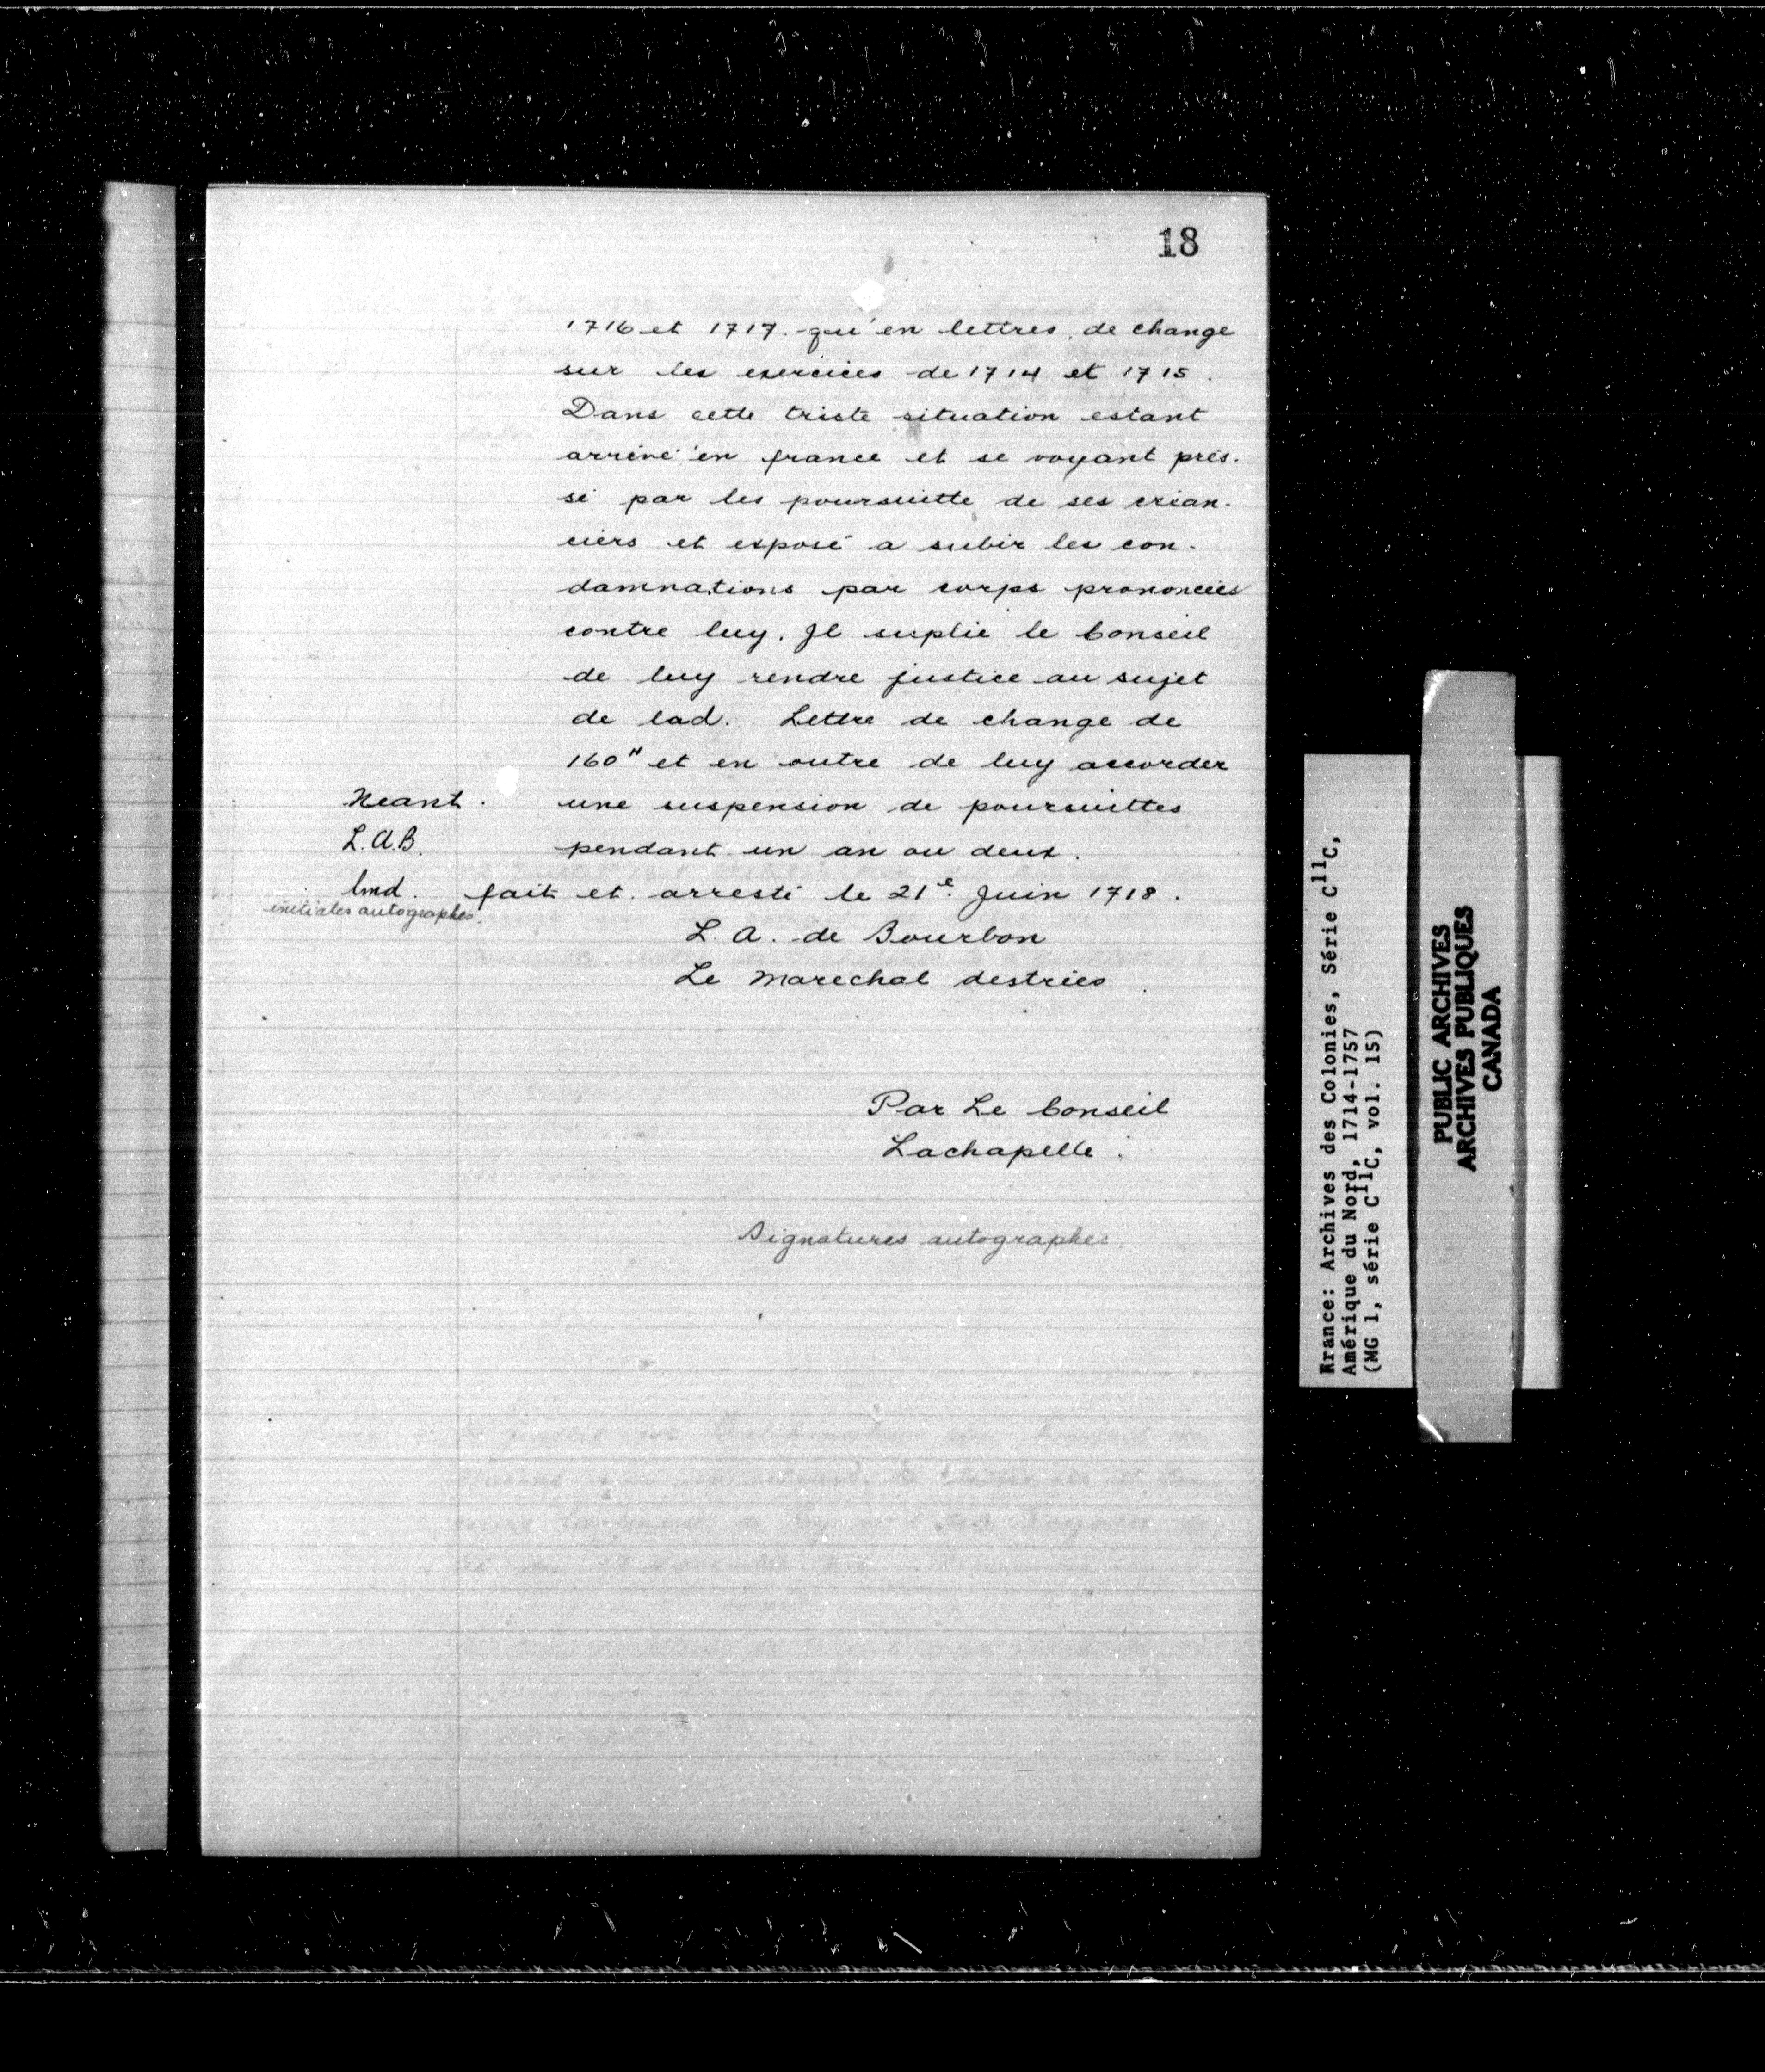 18
1716 et 1717. qu'en lettres de change
sur les exercices de 1714 et 1715.
Dans cette triste situation estant
arrivé en france et se voyant pres-
sé par les poursuitte de ses créan-
ciers et exposé a subir les con-
damnations par corps prononcées
contre luy. Il suplie le Conseil
de luy rendre justice au sujet
de lad. Lettre de change de
160" et en outre de luy accorder
Neant. une suspension de poursuittes
L.A.B. pendant un an ou deux.
lmd. fait et arresté le 21e Juin 1718.
initiales autographes.
L. A. de Bourbon
Le Marechal destrées
Par Le Conseil
Lachapelle.
Signatures autographes.
France: Archives des Colonies, Série C11C,
Amérique du Nord, 1714-1757
(MG 1, série C11C, vol. 15)
PUBLIC ARCHIVES
ARCHIVES PUBLIQUES
CANADA